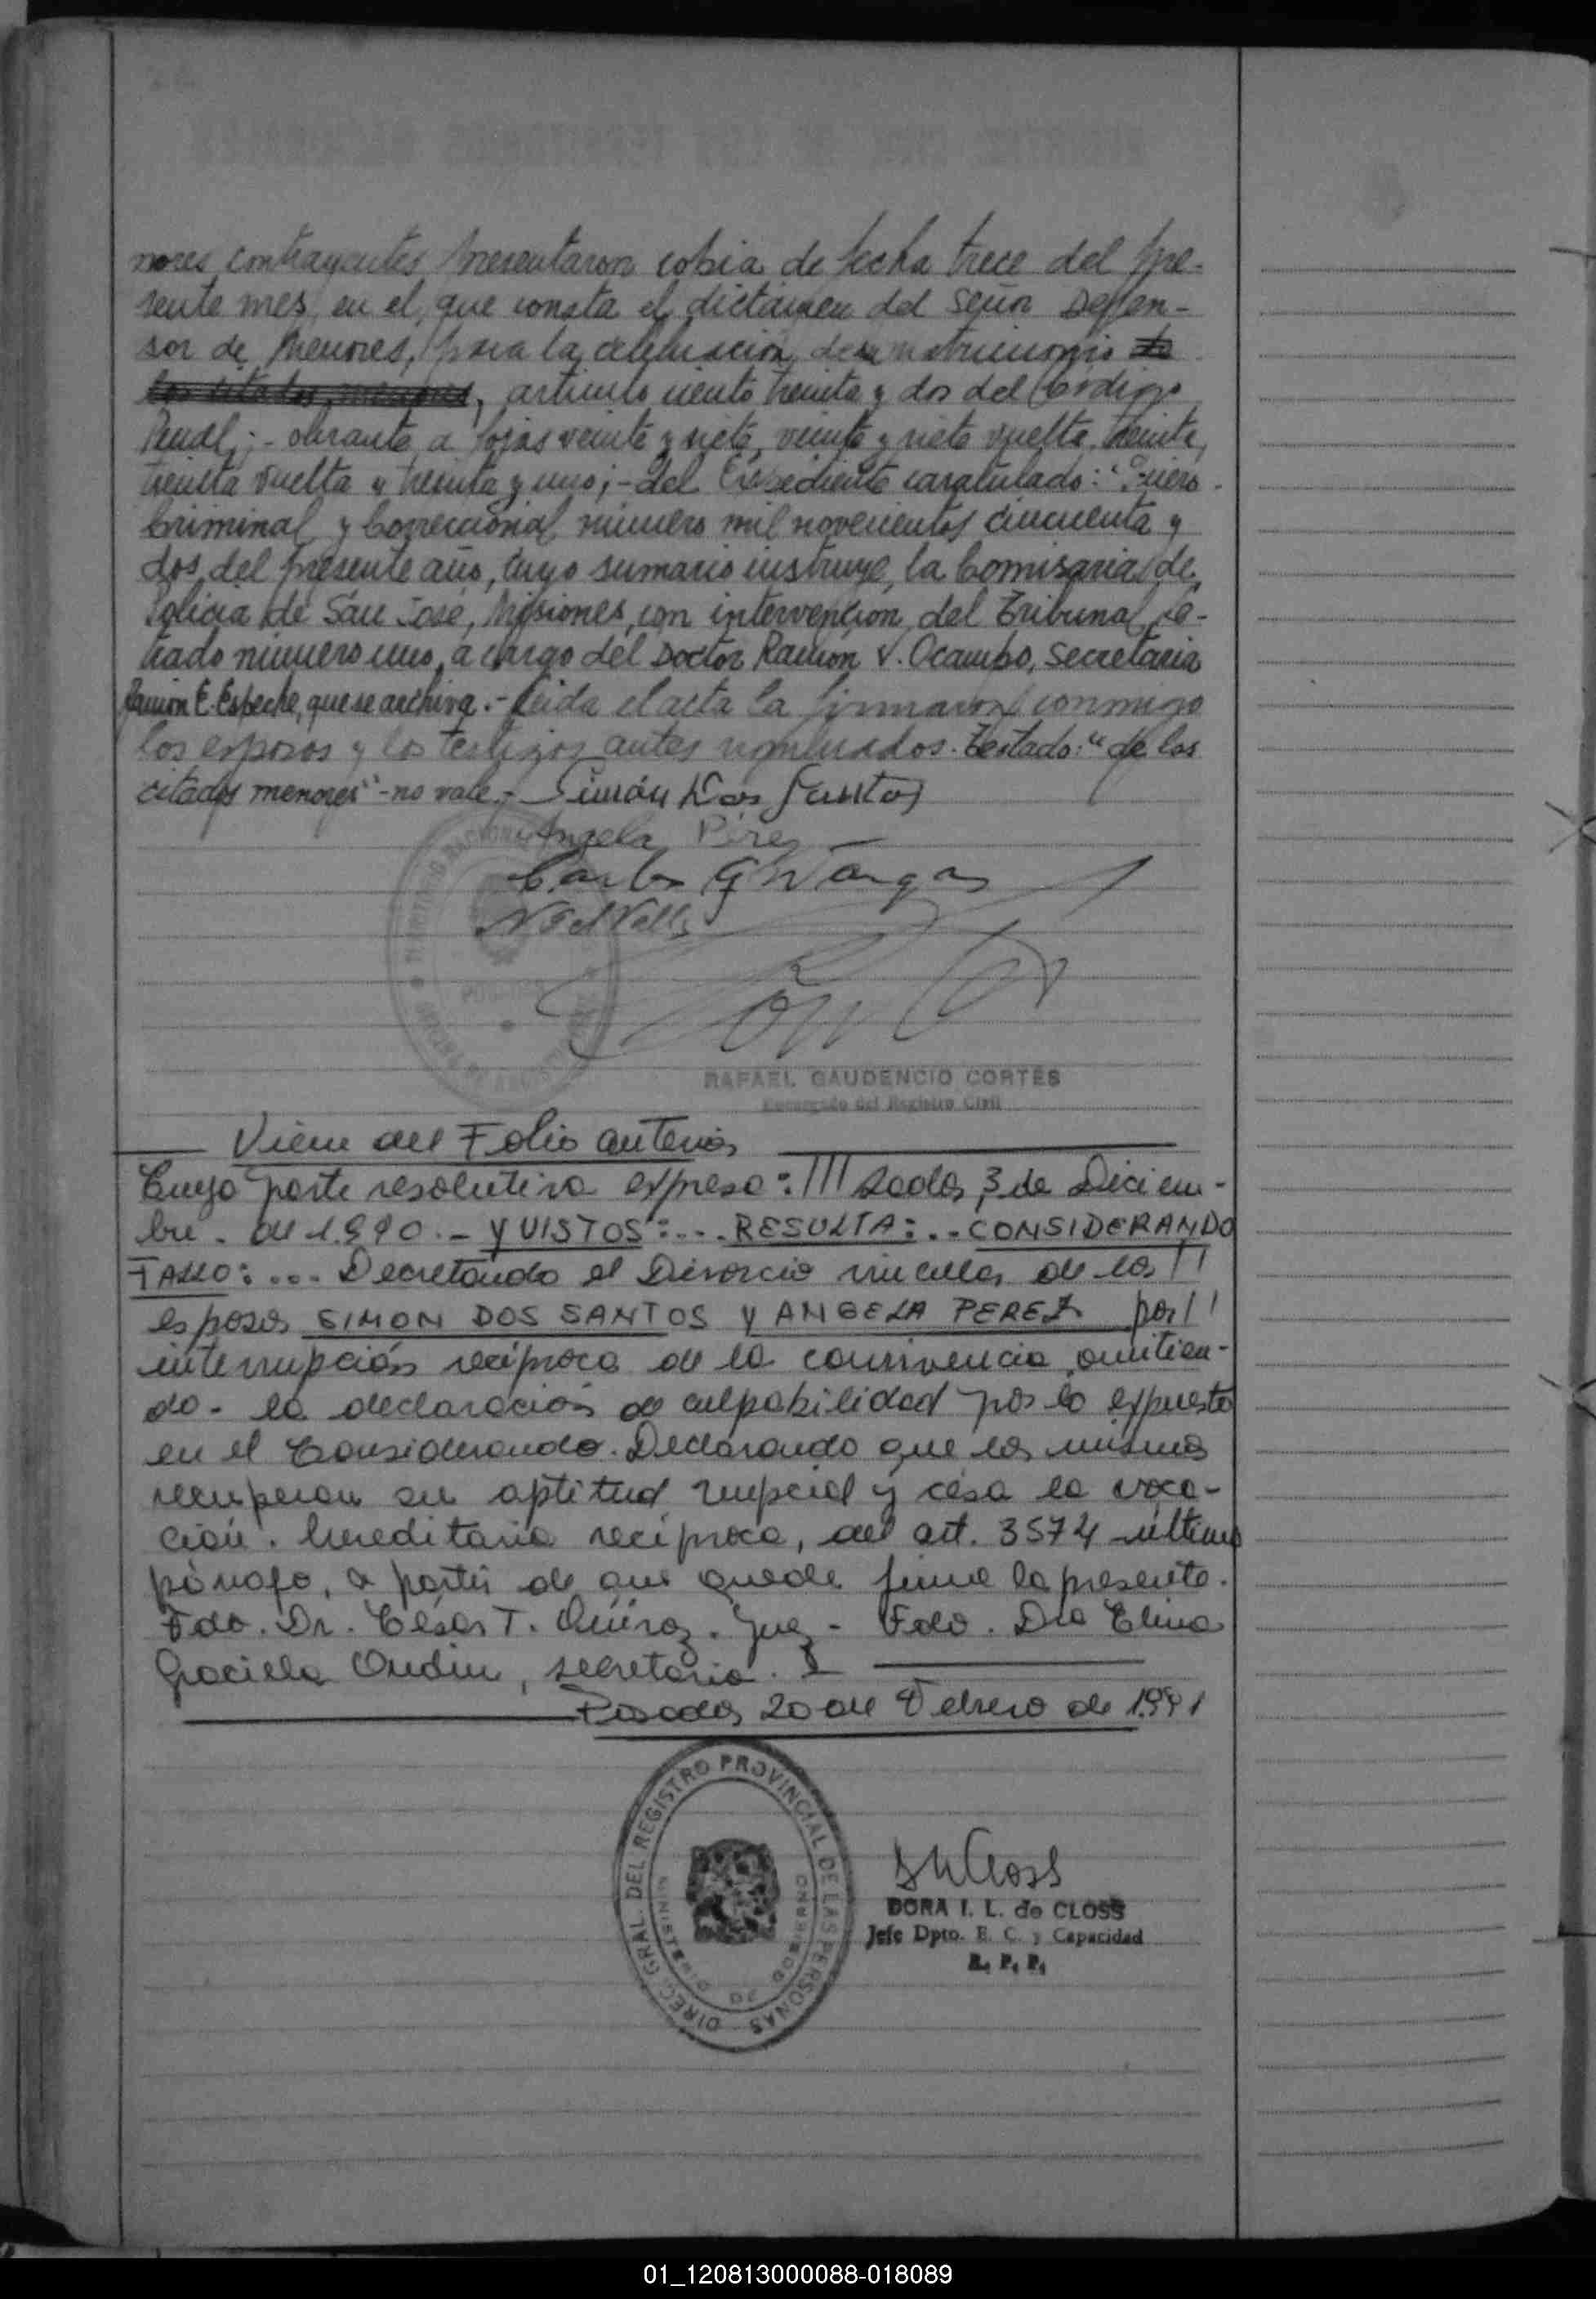 nores contrayentes presentaron copia de fecha trece del pre-
sente mes, en el que consta el dictamen del Señor Defen-
sor de Menores, para la celebración de su matrimonio de
los citados menores, artículo ciento treinta y dos del Código
Penal;- obrante a fojas veinte y siete, veinte y siete vuelta, treinta,
treinta vuelta y treinta y uno;- del Expediente caratulado: "Fuero
Criminal y Correccional número mil novecientos cincuenta y
dos del presente año, cuyo sumario instruye la Comisaria de
Policia de San José, Misiones, con intervención del Tribunal Le-
trado número uno, a cargo del Doctor Ramón V. Ocampo, Secretaria
Ramón E. Espeche, que se archiva.- Leida el acta la firmaron conmigo
los esposos y los testigos antes nombrados. Testado: "de los
citados menores" - no vale.- Simón Dos Santos
Angela Pérez
Carlos G Vargas
RAFAEL GAUDENCIO CORTÉS
Encargado del Registro Civil
Viene del Folio anterior
Cuya parte resolutiva expresa: /// sadas, 3 de Diciem-
bre. de 1.990.- Y VISTOS:... RESULTA:..- CONSIDERANDO
FALLO:... Decretando el Divorcio vincular de los //
esposos SIMON DOS SANTOS Y ANGELA PEREZ por //
interrupción recíproca de la convivencia omitien-
do- la declaración de culpabilidad por lo expuesto
en el Considerando. Declarando que los mismos
recuperan su aptitud nupcial y cesa la voca-
ción. hereditaria recíproca, del art. 3574 último
párrafo, a partir de que quede firme la presente.
Fdo. Dr. César T. Quiroz. Juez - Fdo. Dra Elina
Graciela Ondin, secretaria.
Posadas 20 de Febrero de 1991
DIREC. GRAL. DEL REGISTRO PROVINCIAL DE LAS PERSONAS
MINISTERIO DE GOBIERNO
DORA I. L. de CLOSS
Jefe Dpto. E. C. y Capacidad
R. P. P.
01_120813000088-018089